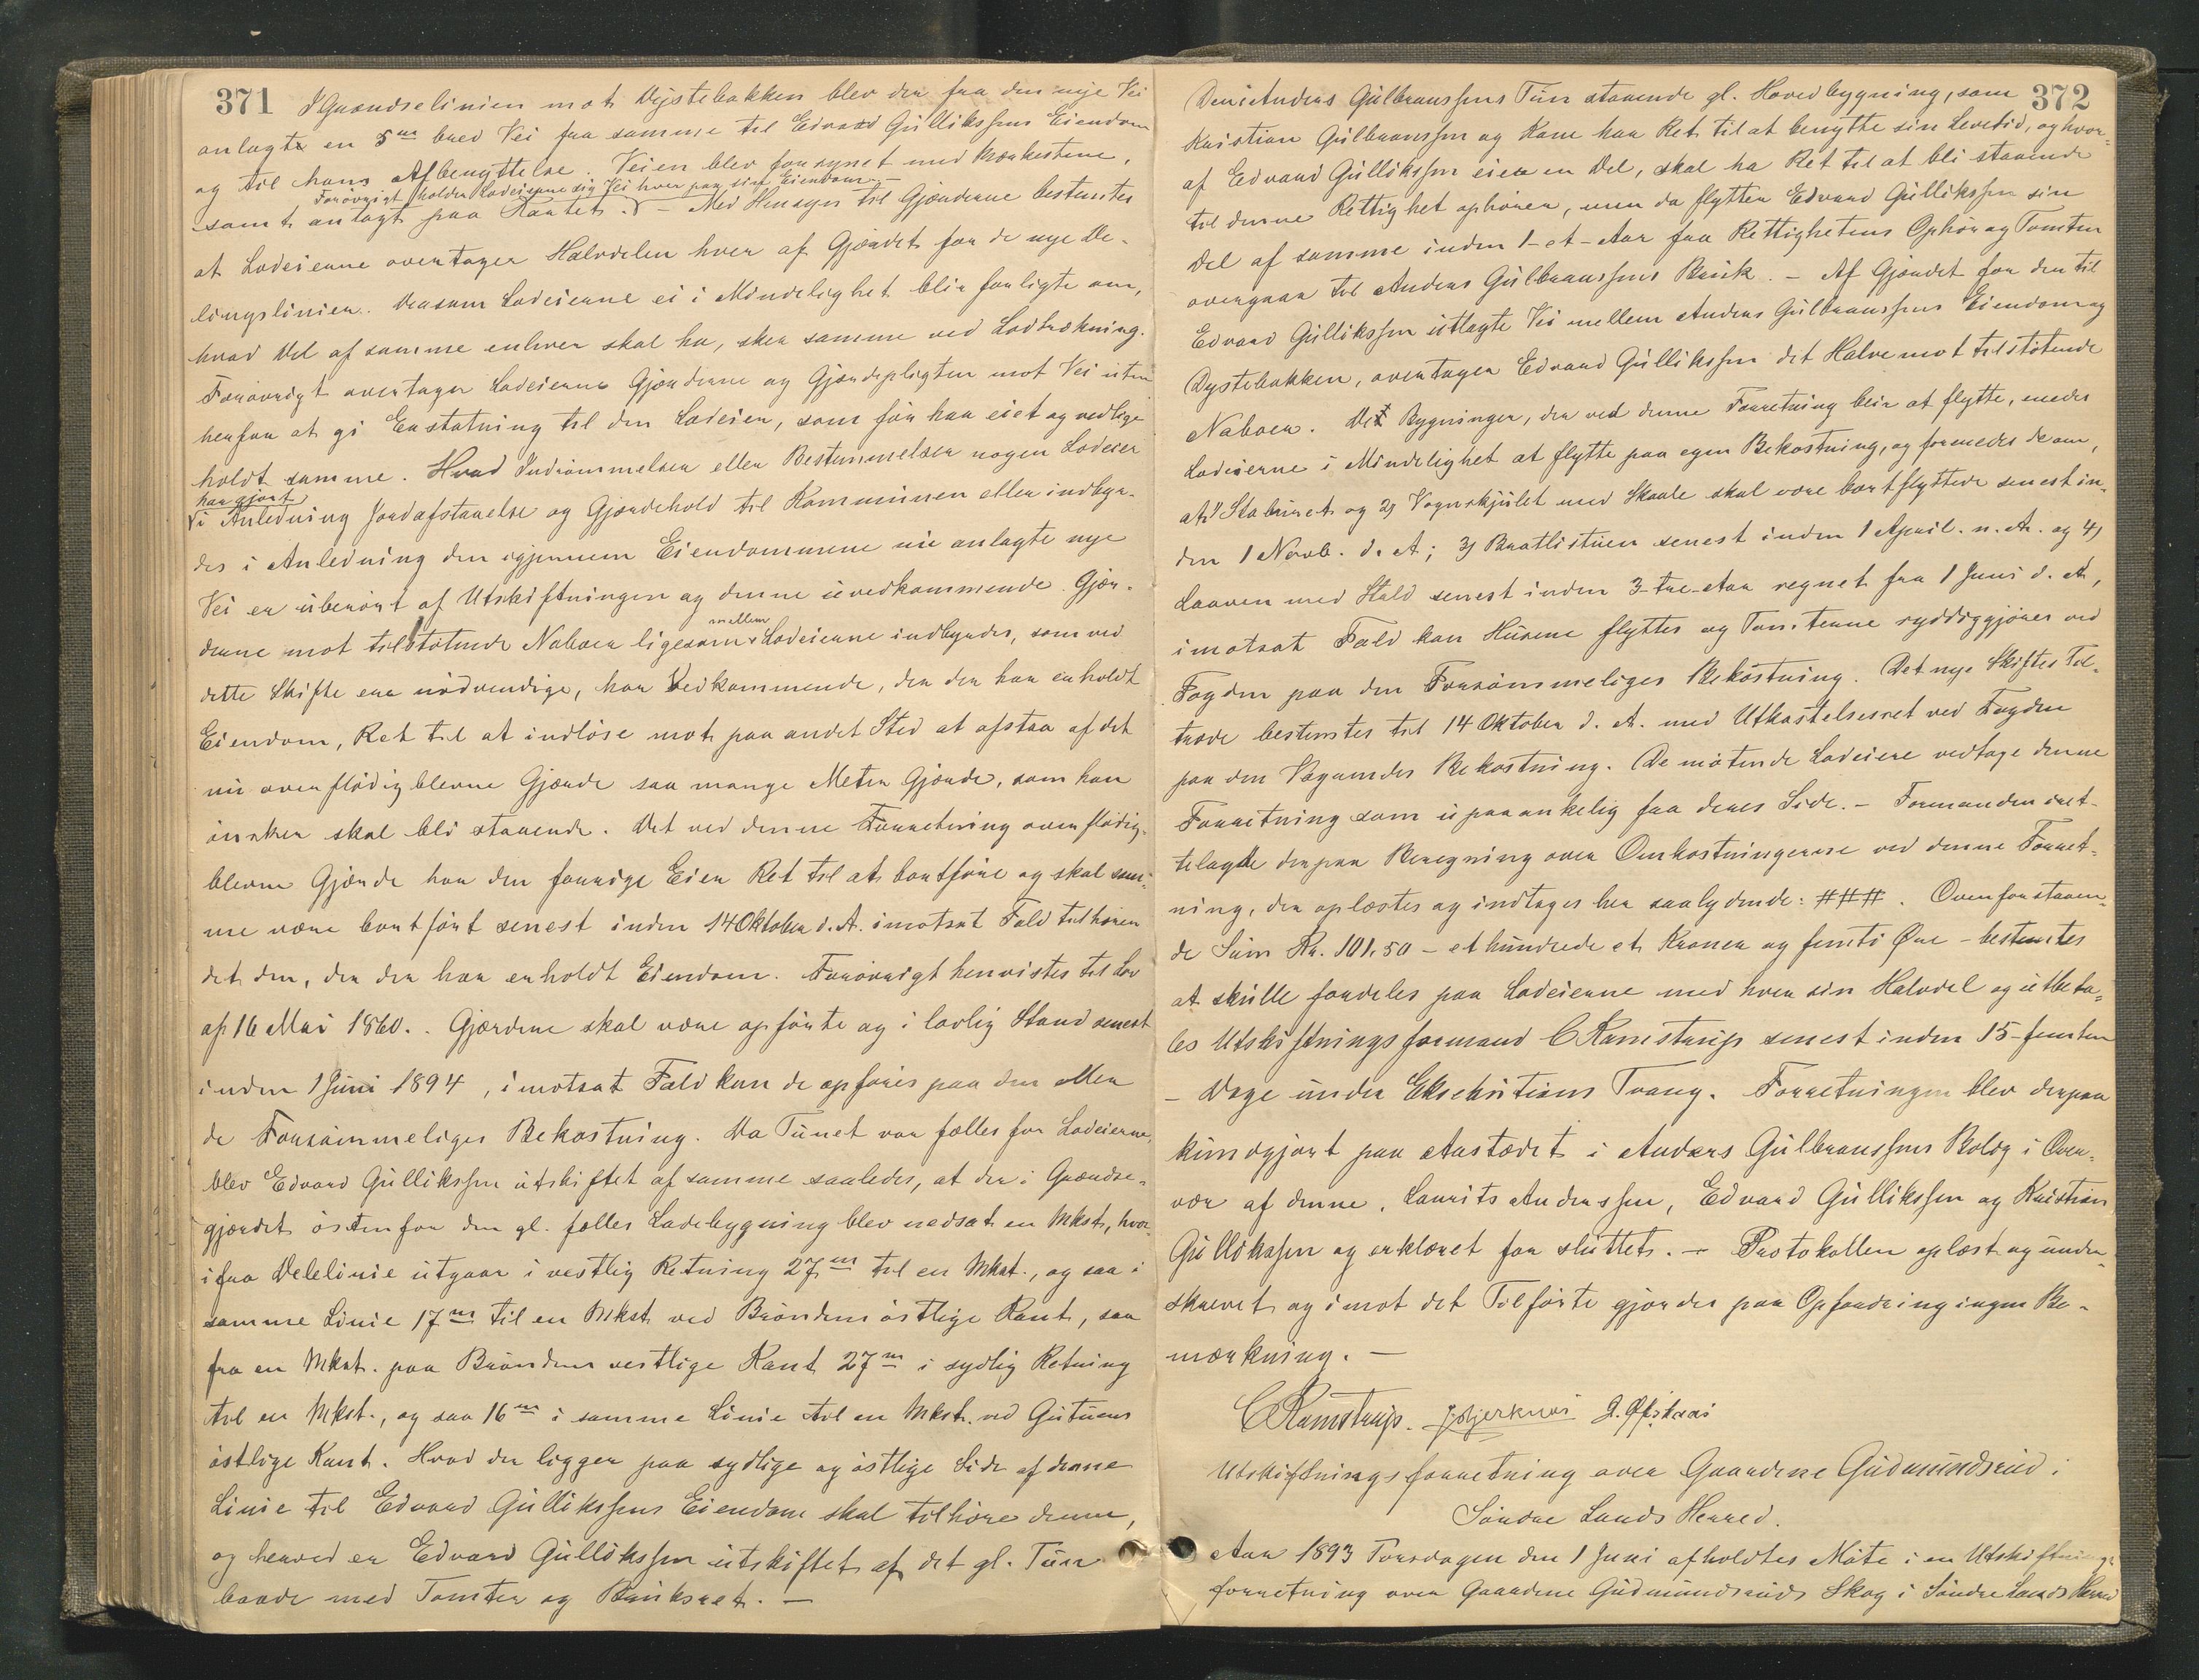 371
I Grændselinien mot Dystebakken blev der fra den nye Vei
anlagt en 5 m bred Vei fra samme til Edvard Gullikssens Eiendom
og til hans Afbenyttelse. Veien blev forsynet med Merkestene,
Forøvrigt holder Lodeierne sig Vei hver paa sin Eiendom. –
samt anlagt paa Kartet. – Med Hensyn til Gjærderne bestemtes
at Lodeierne overtager Halvdelen hver af Gjærdet for de nye De-
lingslinier. Dersom Lodeierne ei i Mindelighet blir forligte om,
hvad Del af samme enhver skal ha, sker samme ved Lodtrækning.
Forøvrigt overtager Lodeierne Gjærderne og Gjærdepligten mot Vei uten
herfor at gi Erstatning til den Lodeier, som før har eiet og vedlige
holdt samme. Hvad Indrømmelser eller Bestemmelser nogen Lodeier
har gjort
i Anledning Jordafstaaelse og Gjærdehold til Kommunen eller indbyr-
des i Anledning den igjennem Eiendommene nu anlagte nye
Vei er uberørt af Utskiftningen og denne uvedkommende. Gjær-
derne mot tilstøtende Naboer ligesom mellem Lodeierne indbyrdes, som ved
dette Skifte ere nødvendige, har Vedkommende, der der har erholdt
Eiendom, Ret til at indløse mot paa andet Sted at afstaa af det
nu overflødigblevne Gjærde saa mange Meter Gjærde, som han
ønsker skal bli staaende. Det ved denne Forretning overflødig-
blevne Gjærde har den forrige Eier Ret til at bortføre og skal sam-
me være bortført senest inden 14 Oktober d. A. imotsat Fald tilhører
det den, der der har erholdt Eiendom. Forøvrigt henvistes til Lov
af 16 Mai 1860. Gjærderne skal være opførte og i lovlig Stand senest
inden 1 Juni 1894, imotsat Fald kan de opføres paa den eller
de Forsømmeliges Bekostning. Da Tunet var fælles for Lodeierne,
blev Edvard Gullikssen utskiftet af samme saaledes, at der i Grændse-
gjærdet østenfor den gl. fælles Ladebygning blev nedsat en Mkst., hvor-
ifra Delelinie utgaar i vestlig Retning 27 m til en Mkst., og saa i
samme Linie 17 m til en Mkst. ved Brøndens østlige Kant, saa
fra en Mkst. paa Brøndens vestlige Kant 27 m i sydlig Retning
til en Mkst., og saa 16 m i samme Linie til en Mkst. ved Gutuens
østlige Kant. Hvad der ligger paa sydlige og østlige Side af denne
Linie til Edvard Gullikssens Eiendom skal tilhøre denne,
og herved er Edvard Gullikssen utskiftet af det gl. Tun
baade med Tomter og Bruksret. –
372
Den i Anders Gulbranssens Tun staaende gl. Hovedbygning, som
Kristian Gulbranssen og Kone har Ret til at benytte sin Levetid, og hvor-
af Edvard Gullikssen eier en Del, skal ha Ret til at bli staaende
til denne Rettighet ophører, men da flytter Edvard Gullikssen sin
Del af samme inden 1-et-Aar fra Rettighetens Ophør og Tomten
overgaar til Anders Gulbranssens Bruk. – Af Gjærdet for den til
Edvard Gullikssen utlagte Vei mellem Anders Gulbranssens Eiendom og
Dystebakken, overtager Edvard Gullikssen det Halve mot tilstøtende
Naboer. De Bygninger, der ved denne Forretning blir at flytte, enedes
Lodeierne i Mindelighet at flytte paa egen Bekostning, og forenedes de om,
at 1) Staburet og 2) Vognskjulet med Skaale skal være bortflyttede senest in-
den 1 Novb. d. A; 3) Brattlistuen senest inden 1 April. n. A. og 4)
Laaven med Stald senest inden 3-tre-Aar regnet fra 1 Juni d. A,
imotsat Fald kan Husene flyttes og Tomterne ryddiggjøres ved
Fogden paa den Forsømmeliges Bekostning. Det nye Skiftes Til-
træde bestemtes til 14 Oktober d. A. med Utkastelsesret ved Fogden
paa den Vægrendes Bekostning. De møtende Lodeiere vedtage denne
Forretning som upaaankelig fra deres Side. – Formanden iret-
telagde derpaa Beregning over Omkostningerne ved denne Forret-
ning, der oplæstes og indtages her saalydende: ###. Ovenforstaaen-
de Sum Kr. 101.50 – et hundrede et Kroner og femti Øre – bestemtes
at skulle fordeles paa Lodeierne med hver sin Halvdel og utbeta-
les Utskiftningsformand C Ramstrup senest inden 15 – femten
– Dage under Eksekutions Tvang. Forretningen blev derpaa
kundgjort paa Aastedet i Anders Gulbranssens Bolig i Over-
vær af denne, Laurits Anderssen, Edvard Gullikssen og Kristian
Gullikssen og erklæret for sluttet. – Protokollen oplæst og under-
skrevet og imot det Tilførte gjordes paa Opfordring ingen Be-
mærkning. –
C Ramstrup.
Utskiftningsforretning over Gaardene Gudmundsrud i
Søndre Lands Herred.
Aar 1893 Torsdagen den 1 Juni afholdtes Møte i en Utskiftnings
forretning over Gaardene Gudmundsruds Skog i Søndre Lands Herred